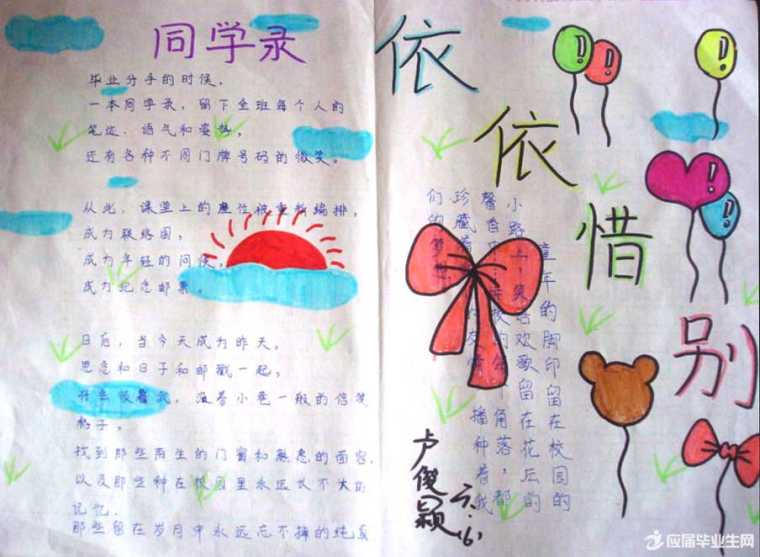 同学录
毕业分手的时候，
一本同学录，留下全班每个人的
笔迹、语气和姿势，
还有各种不同门牌号码的微笑。
从此，课堂上的座位被重新编排，
成为联络图，
成为年轻的问候，
成为纪念邮票。
日后，当今天成为昨天，
思念和日子和邮戳一起，
一般的信笺
格子。
找到那些陌生的门窗和熟悉的面容，
以及那些种在校园里永远长不大的
记忆.
那些留在岁月中永远忘不掉的纯真
依依惜别
童年的脚印留在校园的
小路上，笑容欢歌留在花丛的
馨香
角落，都
播种着我
们的梦想
珍藏着
友情
卢俊颖
应届毕业生网